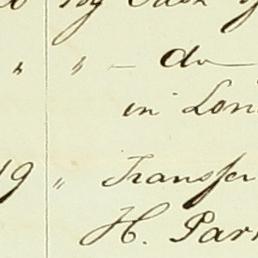 By Cash
" " — do —
in Lon
19 " Transfer
H. Par